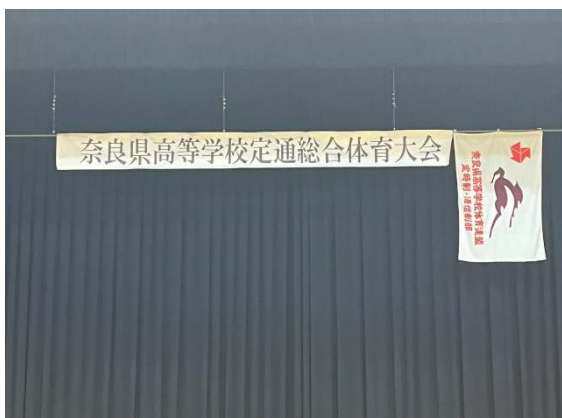 奈良県高等学校定通総合体育大会
奈良県高等学校体育連盟
定時制・通信制部